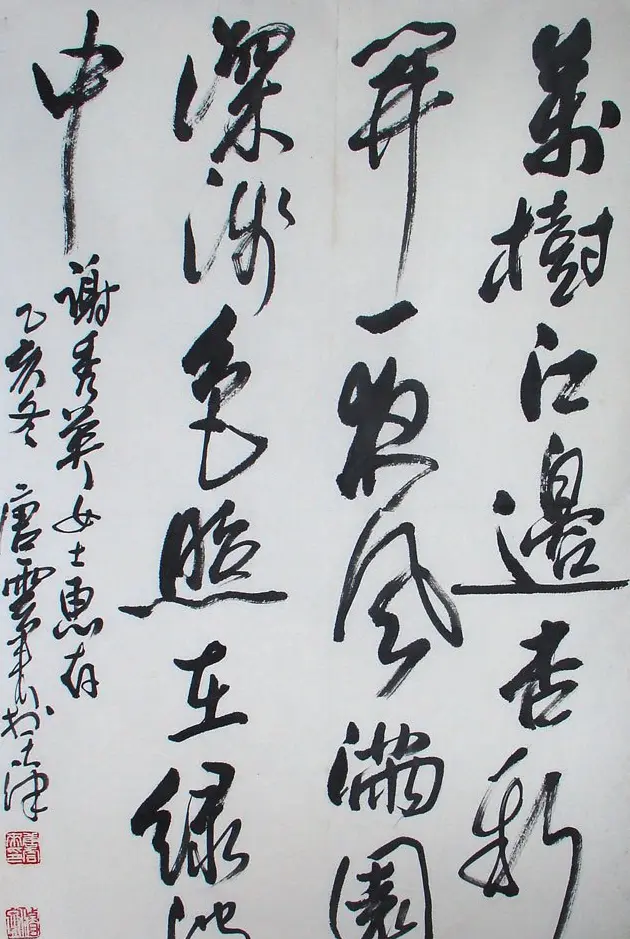 萬樹江邊杏新
開一夜風滿園
深淺色照在綠波
中
謝秀英女士惠存
乙亥冬 唐雲來於天津